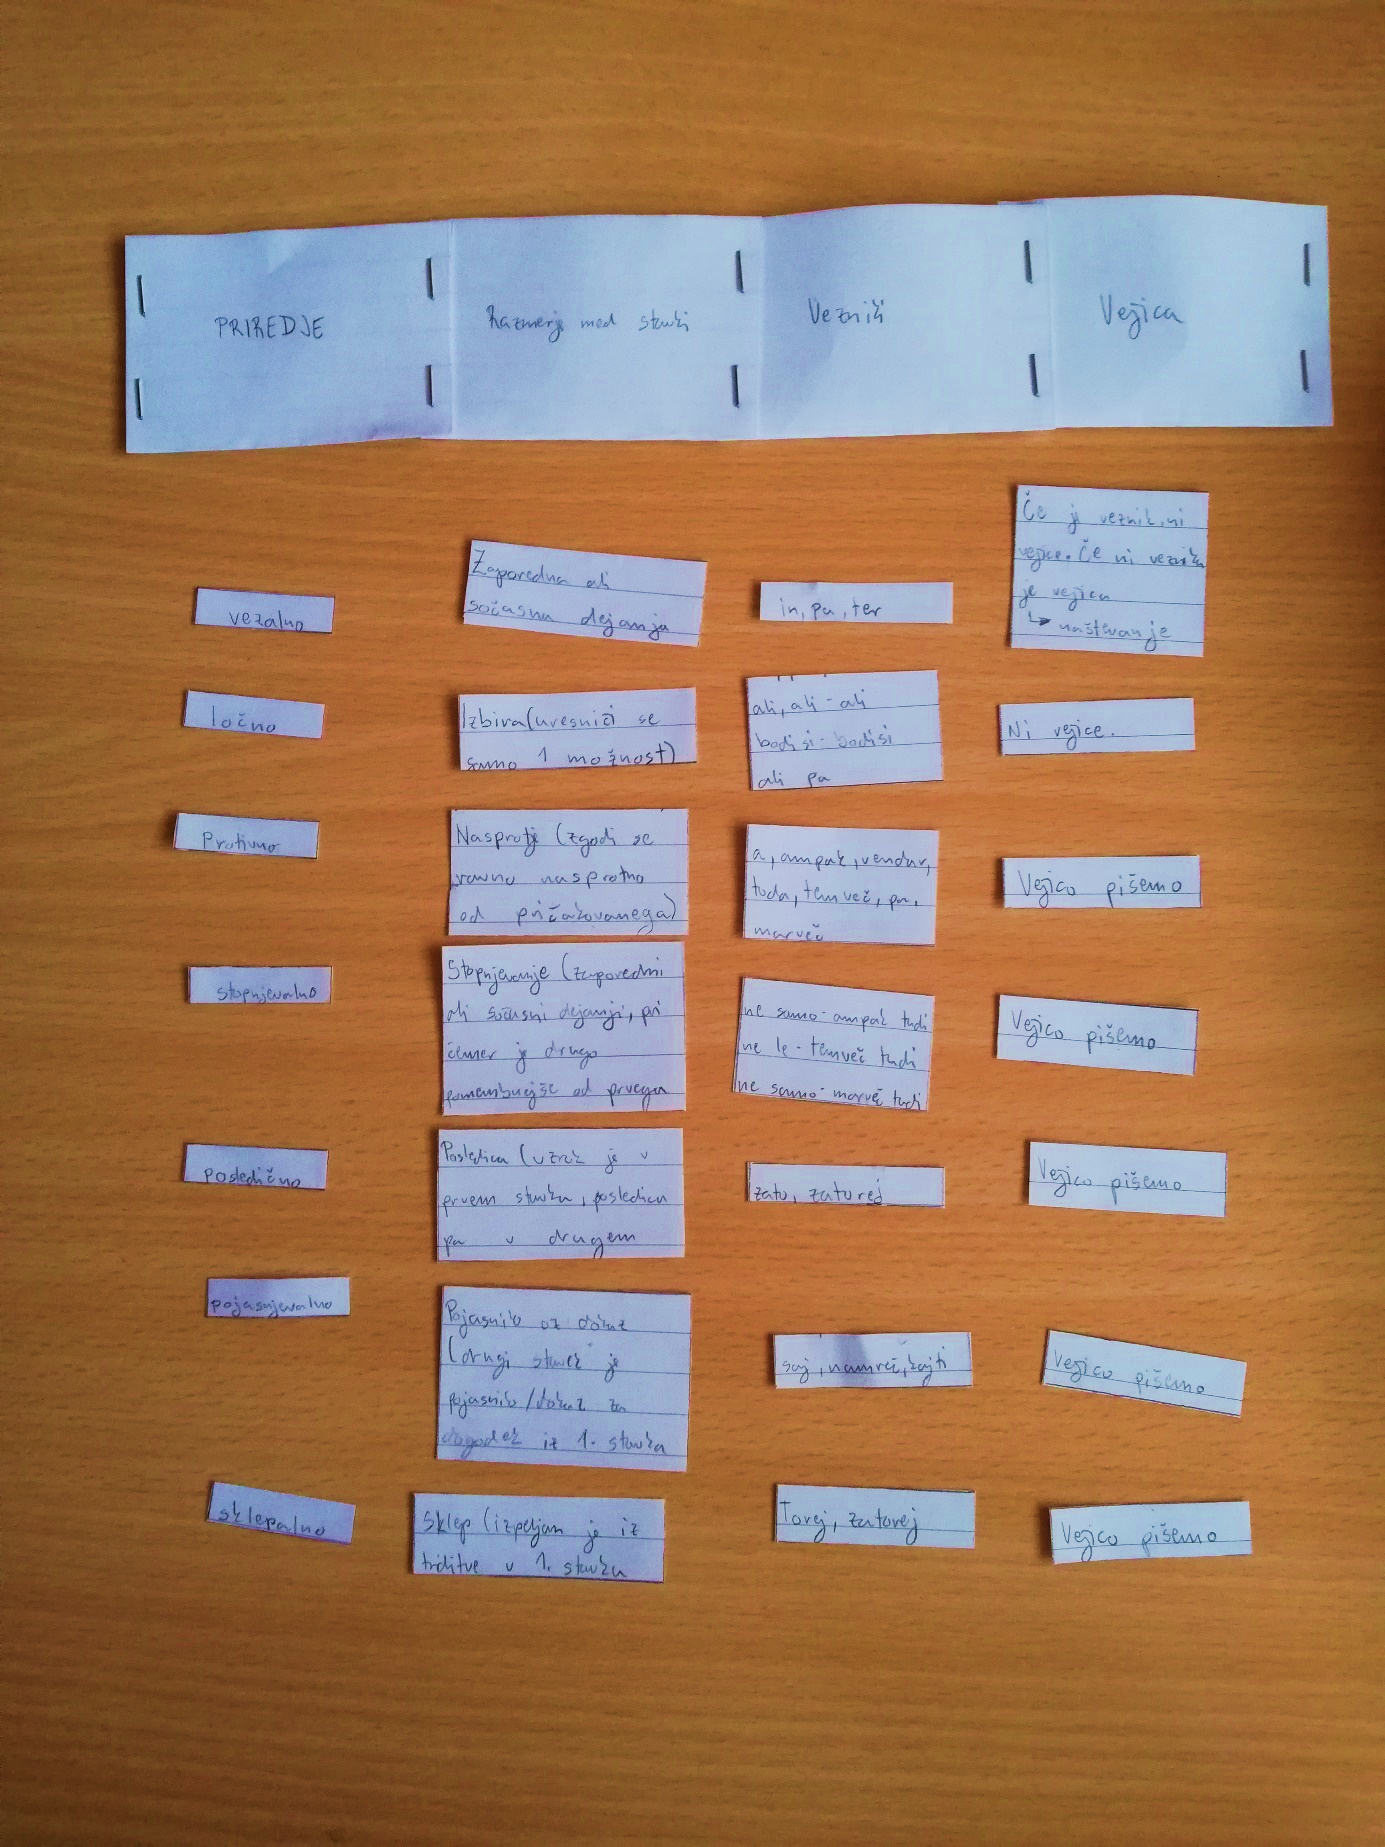 PRIREDJE
Razmerje med stavki
Vezniki
Vejica
vezalno
Zaporedna ali
sočasna dejanja
in, pa, ter
Če je veznik, ni
vejice. Če ni veznika
je vejica
↳ naštevanje
ločno
Izbira (uresniči se
samo 1 možnost)
ali, ali - ali
bodisi - bodisi
ali pa
Ni vejice.
Protivno
Nasprotje (zgodi se
ravno nasprotno
od pričakovanega)
a, ampak, vendar,
toda, temveč, pa,
marveč
Vejico pišemo
stopnjevalno
Stopnjevanje (zaporedni
ali sočasni dejanji, pri
čemer je drugo
pomembnejše od prvega
ne samo - ampak tudi
ne le - temveč tudi
ne samo - marveč tudi
Vejico pišemo
posledično
Posledica (vzrok je v
prvem stavku, posledica
pa v drugem
zato, zatorej
Vejico pišemo
pojasnjevalno
Pojasnilo oz dokaz
(drugi stavek je
pojasnilo/dokaz za
dogodek iz 1. stavka
saj, namreč, kajti
Vejico pišemo
sklepalno
Sklep (izpeljan je iz
trditve v 1. stavku
Torej, zatorej
Vejico pišemo